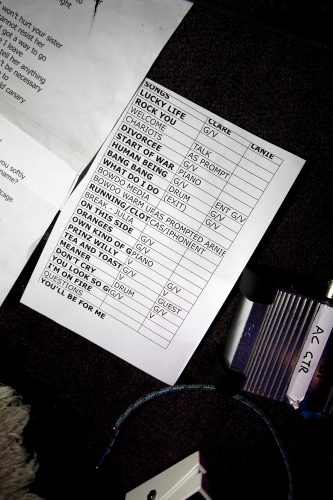 ight
won't hurt your sister
cannot resist her
got a way to go
I leave
tell her anything
n't be necessary
to
ld canary
you softly
name?
icage
SONGS CLARE LANIE
LUCKY LIFE G/V
ROCK YOU
WELCOME TALK
CHARIOTS AS PROMPT
DIVORCEE
START OF WAR PIANO
HUMAN BEING G/V
BANG BANG DRUM ENT G/V
WHAT DO I DO (EXIT) G/V
BOWDO MEDIA G/V
BOWDO WARM UP AS PROMPTED ARNIE
RUNNING/CLOT CAS/PHONIENT
BREAK - JULIA
ON THIS SIDE G/V
ORANGES G/V
OWN KIND OF G PIANO
PRINZ WILLY V
TEA AND TOAST G/V G/V
MEANER V
DON'T CRY DRUM GUEST
YOU LOOK SO G G/V G/V
I'M ON FIRE V
QUESTIONS
YOU'LL BE FOR ME
AC CTR